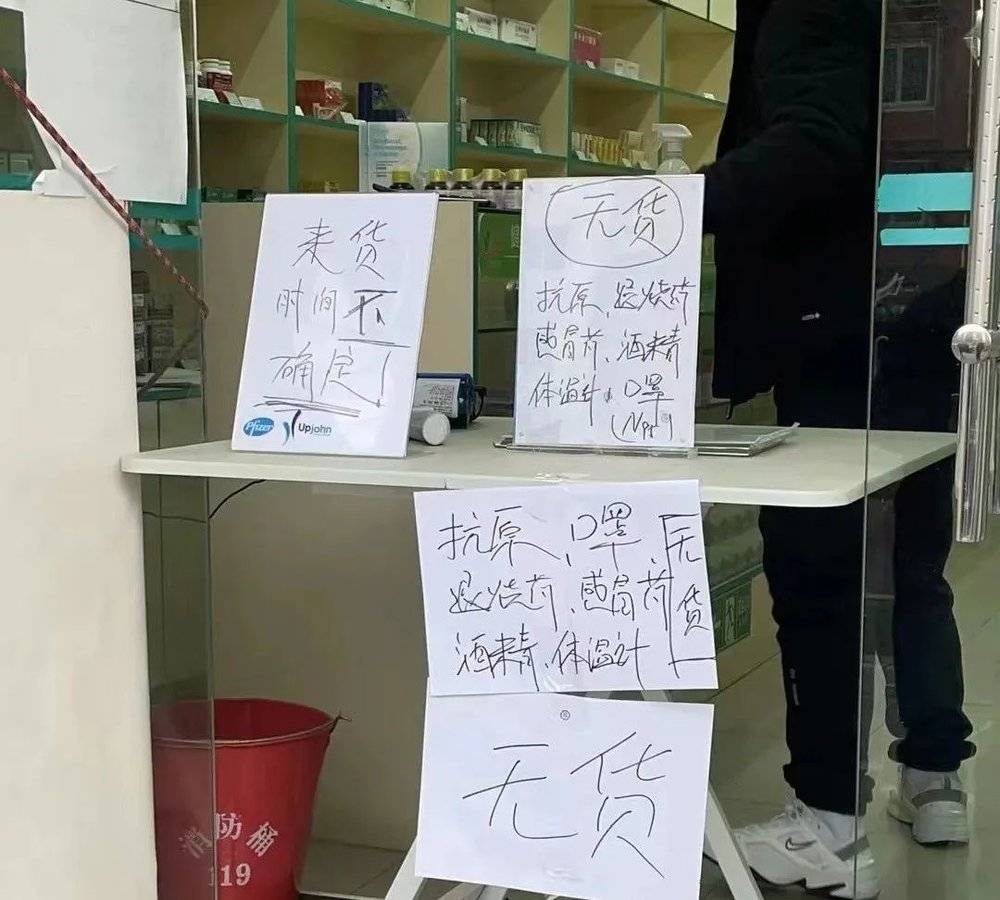 来货
时间不
确定!
Pfizer
Upjohn
无货
抗原、退烧药
感冒药、酒精
体温计、口罩
抗原、口罩、无货
退烧药、感冒药
酒精、体温计
无货
消防桶
119